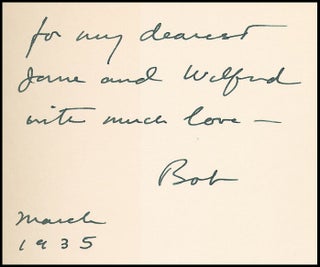 for my dearest
Jane and Wilfred
with much love —
Bob
March
1935